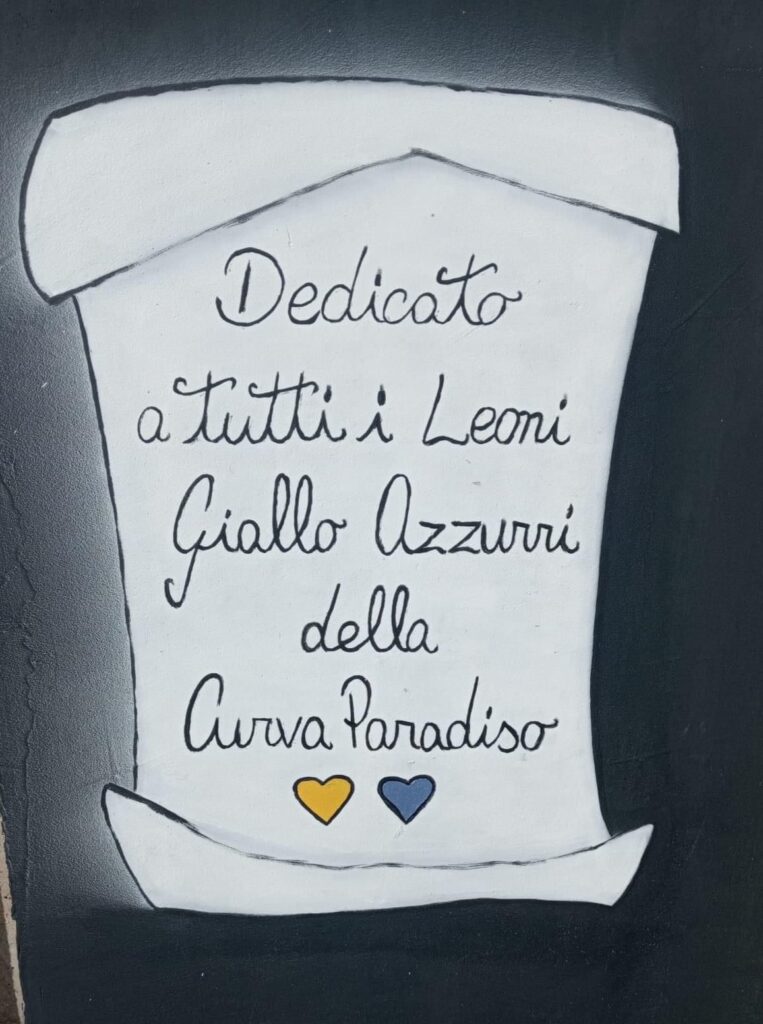 Dedicato
a tutti i Leoni
Giallo Azzurri
della
Curva Paradiso